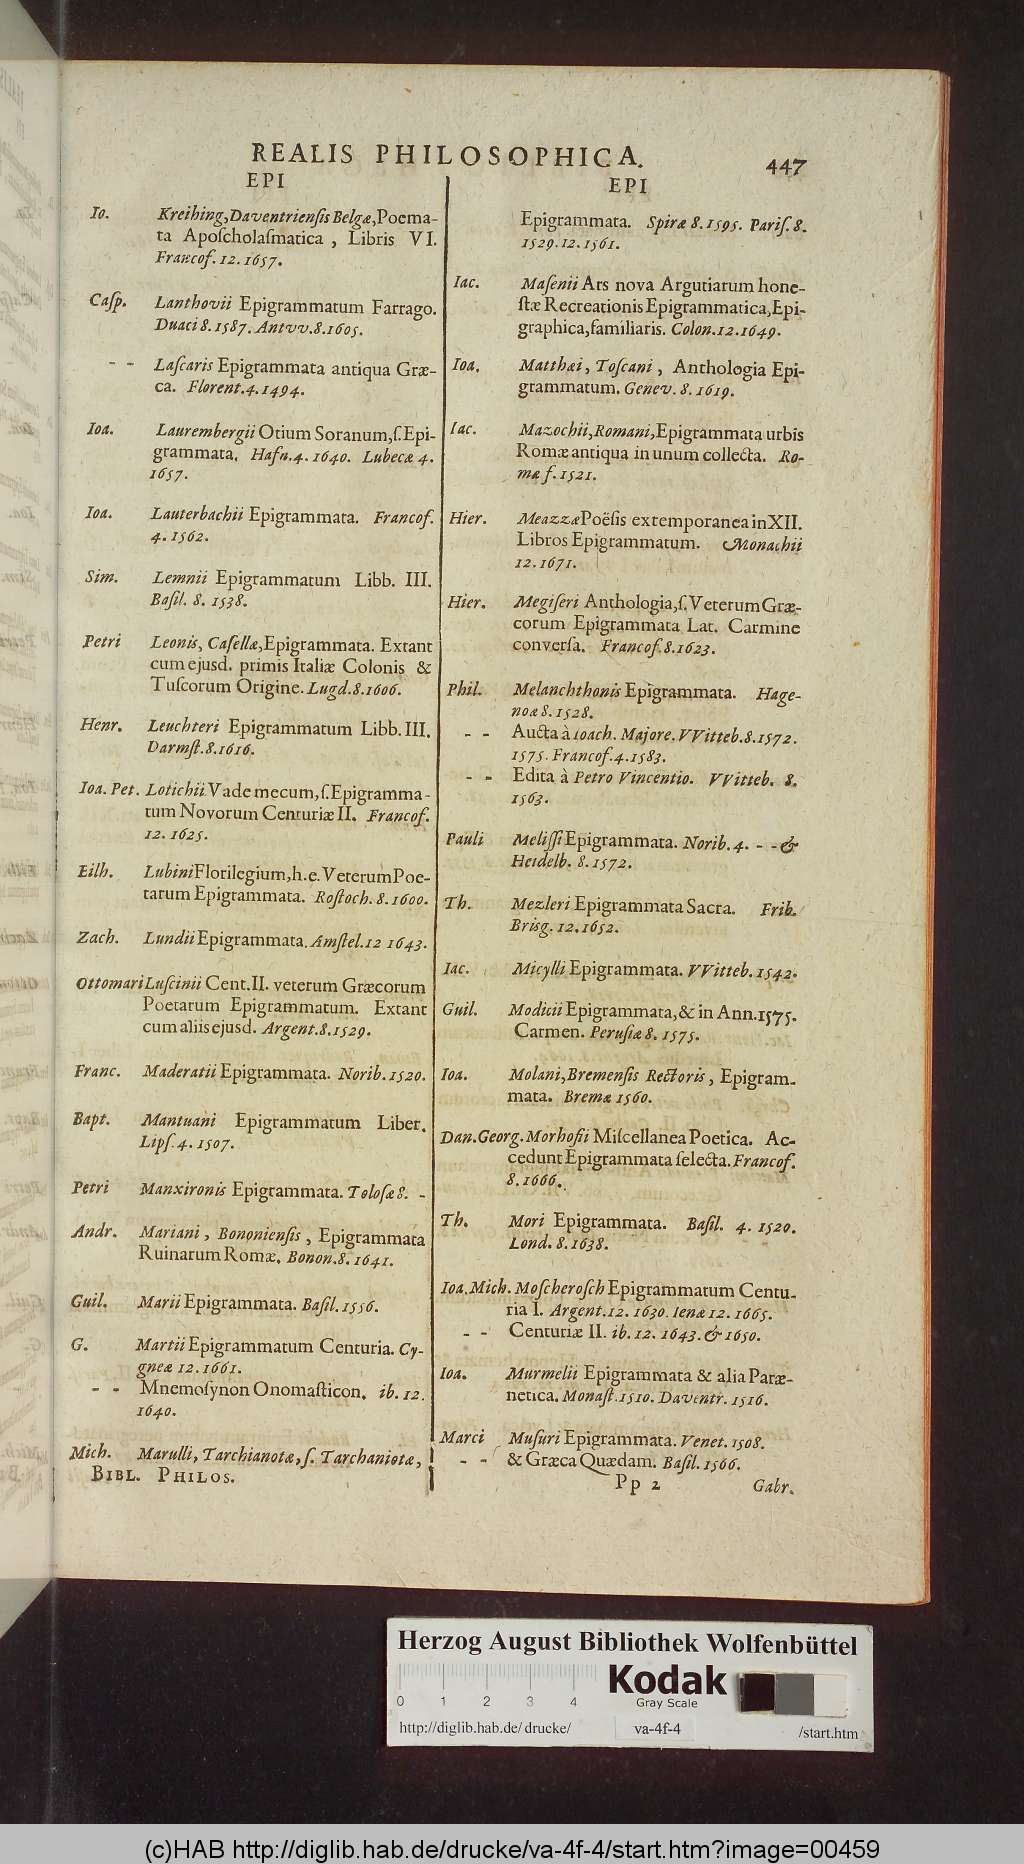 REALIS PHILOSOPHICA.
447
EPI
Io. Kreihing, Daventrienſis Belgæ, Poema-
ta Apoſcholaſmatica, Libris VI.
Francof. 12. 1657.
Caſp. Lanthovii Epigrammatum Farrago.
Duaci 8. 1587. Antvv. 8. 1605.
- - Laſcaris Epigrammata antiqua Græ-
ca. Florent. 4. 1494.
Ioa. Laurembergii Otium Soranum, ſ. Epi-
grammata. Hafn. 4. 1640. Lubecæ 4.
1657.
Ioa. Lauterbachii Epigrammata. Francof.
4. 1562.
Sim. Lemnii Epigrammatum Libb. III.
Baſil. 8. 1538.
Petri Leonis, Caſellæ, Epigrammata. Extant
cum ejusd. primis Italiæ Colonis &
Tuſcorum Origine. Lugd. 8. 1606.
Henr. Leuchteri Epigrammatum Libb. III.
Darmſt. 8. 1616.
Ioa. Pet. Lotichii Vade mecum, ſ. Epigramma-
tum Novorum Centuriæ II. Francof.
12. 1625.
Eilh. Lubini Florilegium, h. e. Veterum Poe-
tarum Epigrammata. Roſtoch. 8. 1600.
Zach. Lundii Epigrammata. Amſtel. 12 1643.
Ottomari Luſcinii Cent. II. veterum Græcorum
Poetarum Epigrammatum. Extant
cum aliis ejusd. Argent. 8. 1529.
Franc. Maderatii Epigrammata. Norib. 1520.
Bapt. Mantuani Epigrammatum Liber.
Lipſ. 4. 1507.
Petri Manxironis Epigrammata. Toloſæ 8. -
Andr. Mariani, Bononienſis, Epigrammata
Ruinarum Romæ. Bonon. 8. 1641.
Guil. Marii Epigrammata. Baſil. 1556.
G. Martii Epigrammatum Centuria. Cy-
gneæ 12. 1661.
- - Mnemoſynon Onomaſticon. ib. 12.
1640.
Mich. Marulli, Tarchianotæ, ſ. Tarchaniotæ,
BIBL. PHILOS.
EPI
Epigrammata. Spiræ 8. 1595. Pariſ. 8.
1529. 12. 1561.
Iac. Maſenii Ars nova Argutiarum hone-
ſtæ Recreationis Epigrammatica, Epi-
graphica, familiaris. Colon. 12. 1649.
Ioa. Matthæi, Toſcani, Anthologia Epi-
grammatum. Genev. 8. 1619.
Iac. Mazochii, Romani, Epigrammata urbis
Romæ antiqua in unum collecta. Ro-
mæ f. 1521.
Hier. Meazzæ Poëſis extemporanea in XII.
Libros Epigrammatum. Monachii
12. 1671.
Hier. Megiſeri Anthologia, ſ. Veterum Græ-
corum Epigrammata Lat. Carmine
converſa. Francof. 8. 1623.
Phil. Melanchthonis Epigrammata. Hage-
noæ 8. 1528.
- - Aucta à Ioach. Majore. VVitteb. 8. 1572.
1575. Francof. 4. 1583.
- - Edita à Petro Vincentio. VVitteb. 8.
1563.
Pauli Meliſſi Epigrammata. Norib. 4. - - &
Heidelb. 8. 1572.
Th. Mezleri Epigrammata Sacra. Frib.
Brisg. 12. 1652.
Iac. Micylli Epigrammata. VVitteb. 1542.
Guil. Modicii Epigrammata, & in Ann. 1575.
Carmen. Peruſiæ 8. 1575.
Ioa. Molani, Bremenſis Rectoris, Epigram-
mata. Bremæ 1560.
Dan. Georg. Morhofii Miſcellanea Poetica. Ac-
cedunt Epigrammata ſelecta. Francof.
8. 1666.
Th. Mori Epigrammata. Baſil. 4. 1520.
Lond. 8. 1638.
Ioa. Mich. Moſcheroſch Epigrammatum Centu-
ria I. Argent. 12. 1630. Ienæ 12. 1665.
- - Centuriæ II. ib. 12. 1643. & 1650.
Ioa. Murmelii Epigrammata & alia Paræ-
netica. Monaſt. 1510. Daventr. 1516.
Marci Muſuri Epigrammata. Venet. 1508.
- - & Græca Quædam. Baſil. 1566.
Pp 2
Gabr.
Herzog August Bibliothek Wolfenbüttel
0 1 2 3 4
Kodak
Gray Scale
http://diglib.hab.de/drucke/ va-4f-4 /start.htm
(c)HAB http://diglib.hab.de/drucke/va-4f-4/start.htm?image=00459